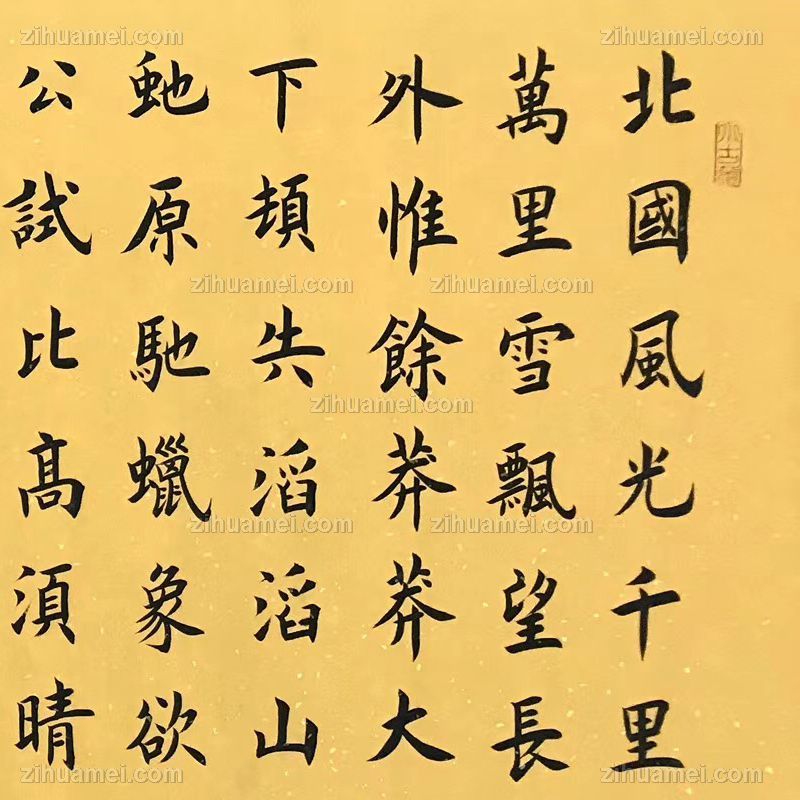 北國風光千里
萬里雪飄望長
外惟餘莽莽大
下頓失滔滔山
虵原馳蠟象欲
公試比髙湏晴
zihuamei.com